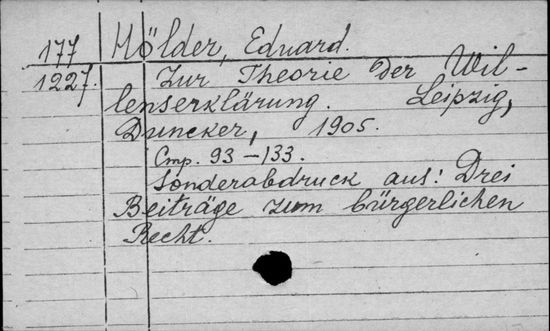 177 Hölder, Eduard.
1227. Zur Theorie der Wil-
lenserklärung. Leipzig,
Duncker, 1905.
Стр. 93–133.
Sonderabdruck aus: Drei
Beiträge zum bürgerlichen
Recht.